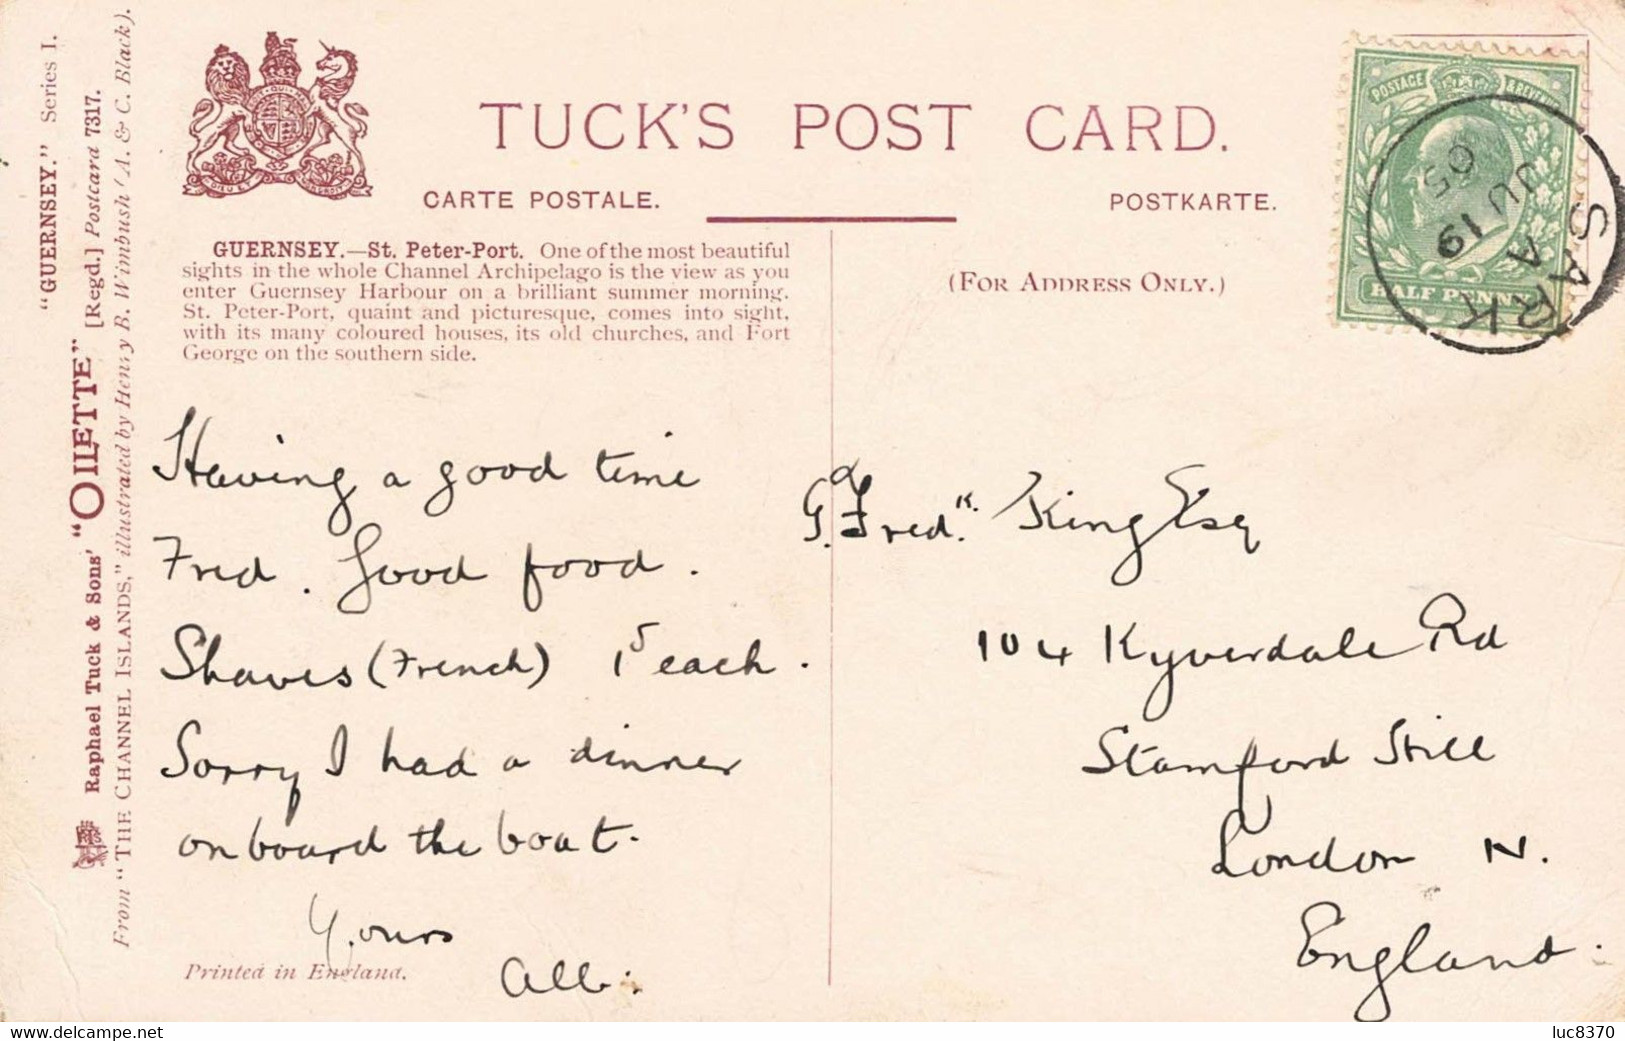 "GUERNSEY." Series I.
Raphael Tuck & Sons' "OILETTE" [Regd.] Postcard 7317.
From "THE CHANNEL ISLANDS," illustrated by Henry B. Wimbush (A. & C. Black).
TUCK'S POST CARD.
CARTE POSTALE.
POSTKARTE.
GUERNSEY.—St. Peter-Port. One of the most beautiful
sights in the whole Channel Archipelago is the view as you
enter Guernsey Harbour on a brilliant summer morning.
St. Peter-Port, quaint and picturesque, comes into sight,
with its many coloured houses, its old churches, and Fort
George on the southern side.
(FOR ADDRESS ONLY.)
POSTAGE & REVENUE
HALF PENNY
SARK
A
JU 19
05
Having a good time
Fred. Good food.
Shaves (French) 1s each.
Sorry I had a dinner
on board the boat.
Yours
Alb.
Printed in England.
G. Fredk. King Esq
104 Kyverdale Rd
Stamford Hill
London N.
England.
www.delcampe.net
luc8370